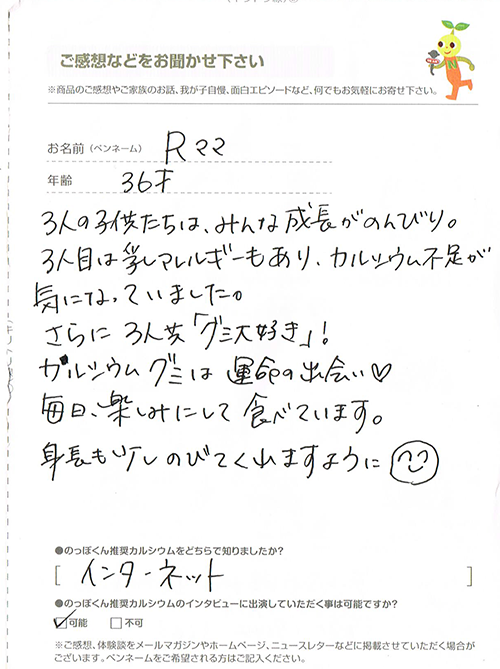 ご感想などをお聞かせ下さい
※商品のご感想やご家族のお話、我が子自慢、面白エピソードなど、何でもお気軽にお寄せ下さい。
お名前（ペンネーム） Rママ
年齢 36才
3人の子供たちは、みんな成長がのんびり。
3人目は乳アレルギーもあり、カルシウム不足が
気になっていました。
さらに 3人共「グミ大好き」！
カルシウムグミは 運命の出会い♡
毎日、楽しみにして 食べています。
身長も少しのびてくれますように
●のっぽくん推奨カルシウムをどちらで知りましたか？
[ インターネット ]
●のっぽくん推奨カルシウムのインタビューに出演していただく事は可能ですか？
☑可能 □不可
※ご感想、体験談をメールマガジンやホームページ、ニュースレターなどに掲載させていただく場合が
ございます。ペンネームをご希望される方はご記入ください。